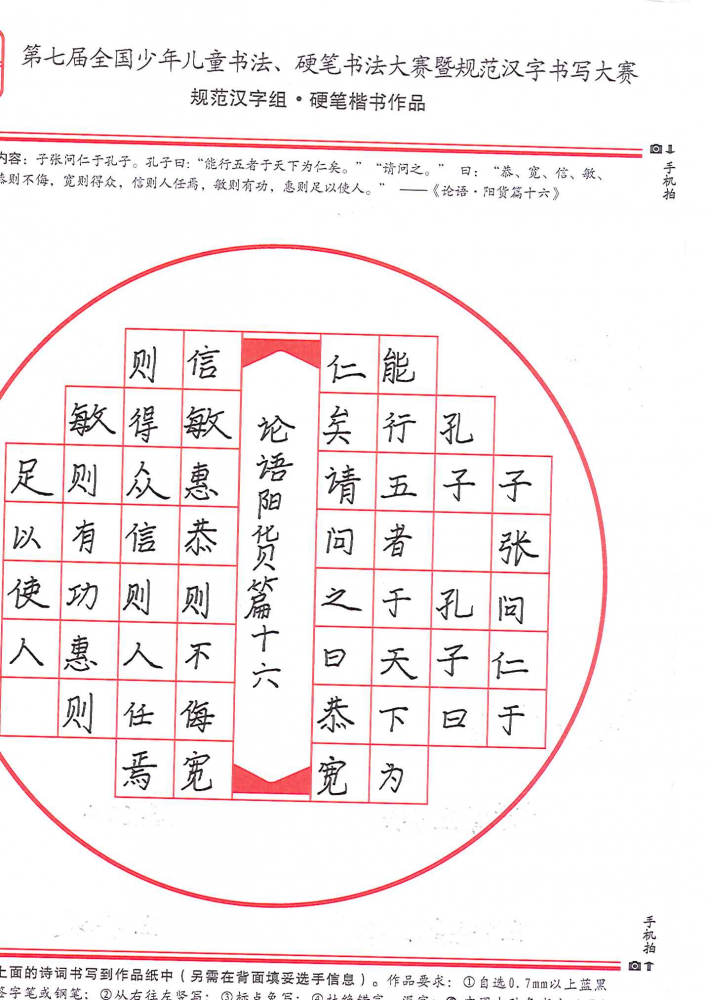 第七届全国少年儿童书法、硬笔书法大赛暨规范汉字书写大赛
规范汉字组·硬笔楷书作品
内容：子张问仁于孔子。孔子曰：“能行五者于天下为仁矣。”“请问之。”曰：“恭、宽、信、敏、
恭则不侮，宽则得众，信则人任焉，敏则有功，惠则足以使人。”——《论语·阳货篇十六》
手机拍
子张问仁于
孔子孔子曰
能行五者于天下为
仁矣请问之曰恭宽
论语阳货篇十六
信敏惠恭则不侮宽
则得众信则人任焉
敏则有功惠则
足以使人
手机拍
上面的诗词书写到作品纸中（另需在背面填妥选手信息）。作品要求：①自选0.7mm以上蓝黑
签字笔或钢笔；②从右往左竖写；③标点免写；④杜绝错字、漏字；